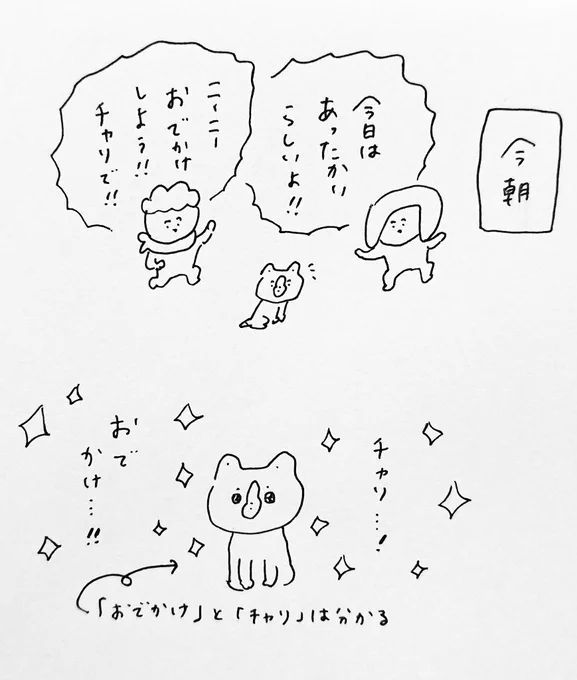 今朝
今日は
あったかい
らしいよ!!
ニーニー
おでかけ
しよう!!
チャリで!!
チャリ…!
おで
かけ…!!
「おでかけ」と「チャリ」は分かる